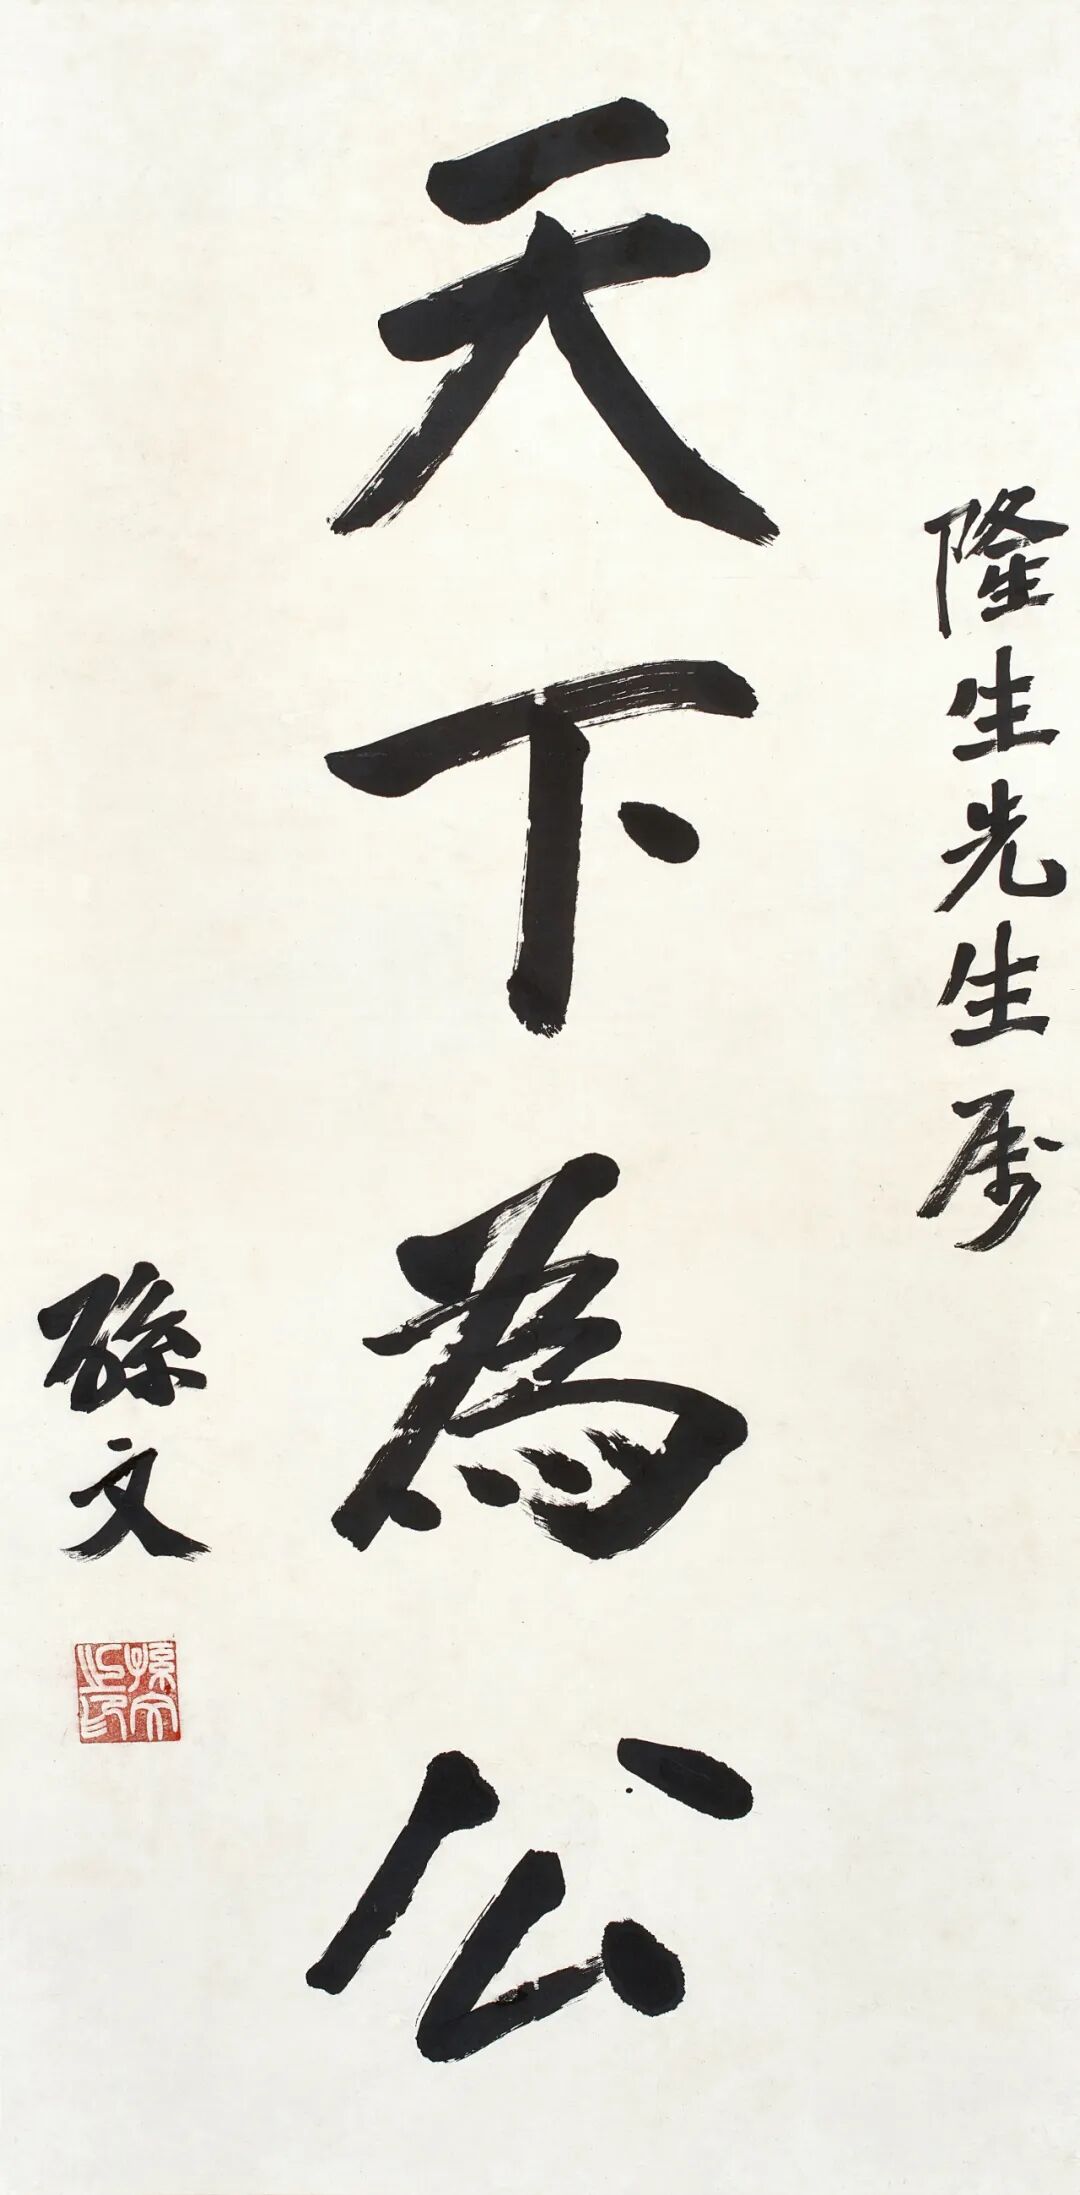 隆生先生属
天下為公
孫文
孫文之印